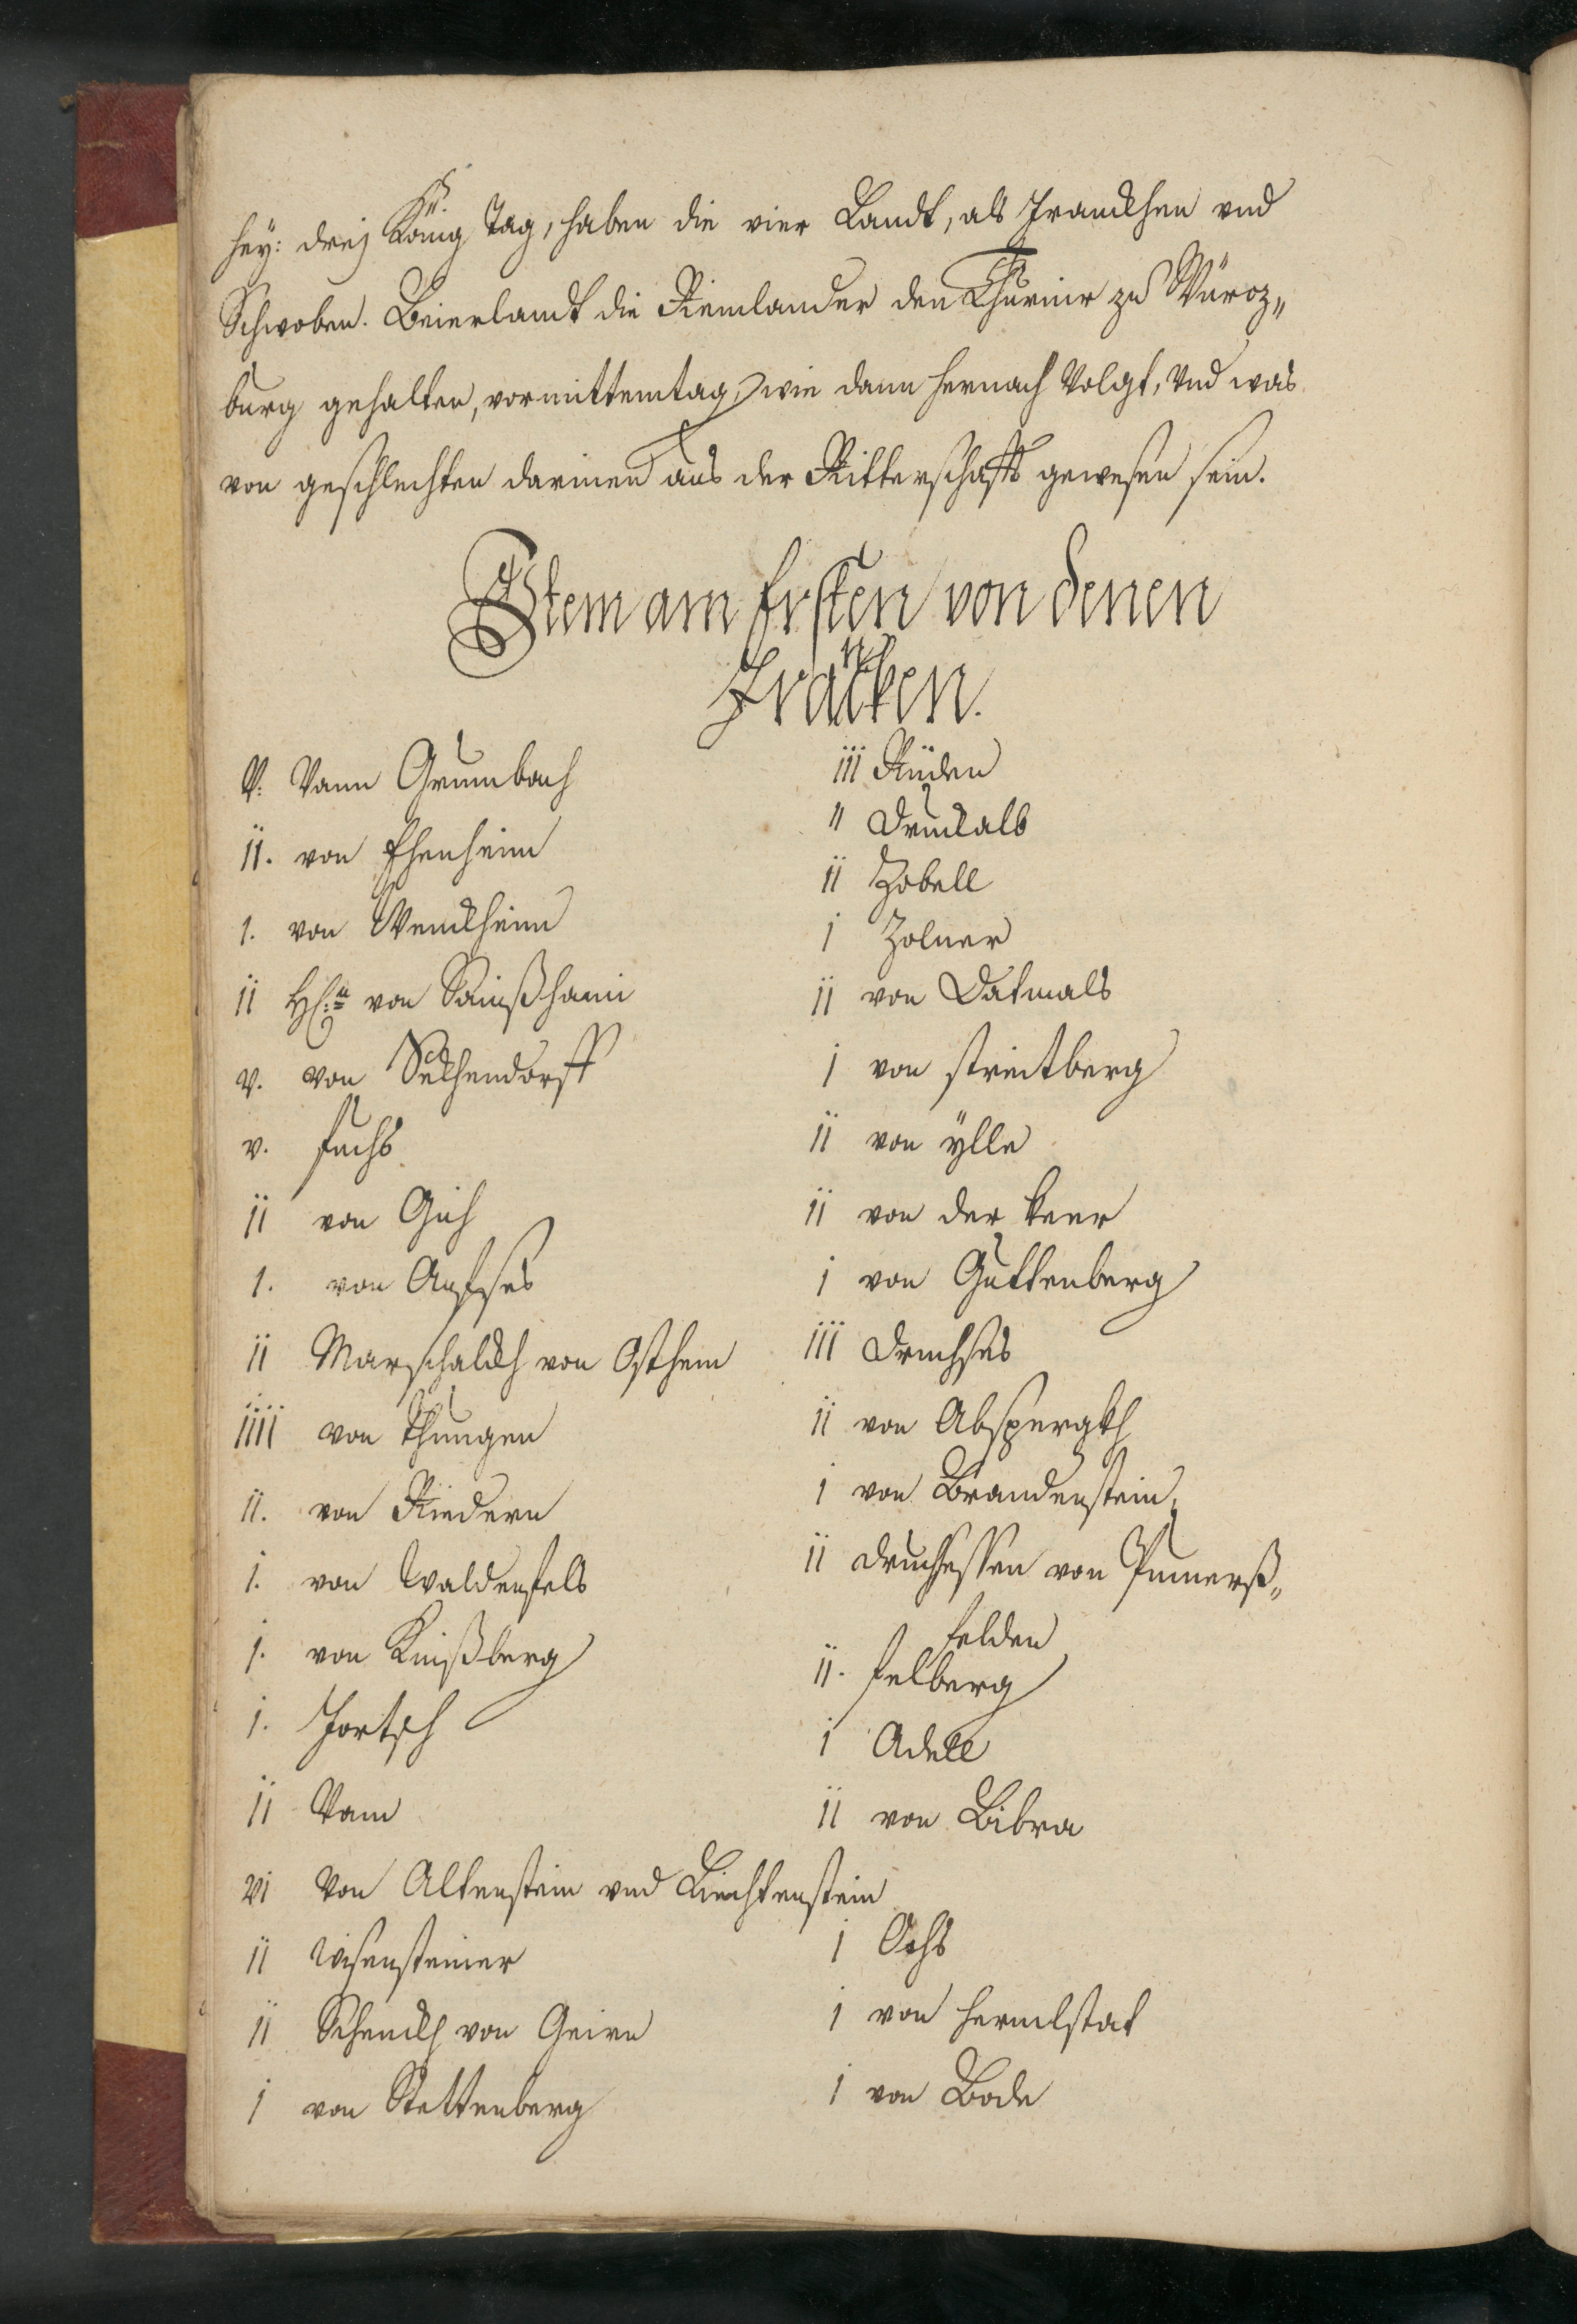 hey: drej König Tag, haben die vier Landt, als Franckhen vnd
Schwoben. Beierlandt die Reinlander den Thurnir zu Würoz„
burg gehalten, vormittemtag, wie dann hernach Volgt, Vnd was
von geschlechten darinen aus der Ritterschafft gewesen sein.
Item am Ersten von denen
Francken.
V: Vann Grumbach
ii. von Ehenheim
1. von Wenckheim
ii von Sainßhaim
v. von Seckhendorff
v. Fuchs
ii von Gich
1. von Aufses
ii Marschalckh von Osthein
iiii von Thungen
ii. von Riedern
i. von Waldenfels
j. von Knißberg
i. Fortsch
ii Vom
vi Von Altenstein vnd Liechtenstein
ii wisensteiner
ii Schenckh von Geirn
j von Stettenberg
iii Rüden
ii Druckalb
ii Zobell
i Zolner
ii von Datmals
j von streitberg
ii von ÿlle
ii von der keer
i von Guttenberg
iii Druchses
ii von Abspergkh
i von Brandenstein
ii druchsessen von Pumerß„
felden
ii. felberg
i Adell
ii von Bibra
i Ochs
i von hermlstat
i von Bode